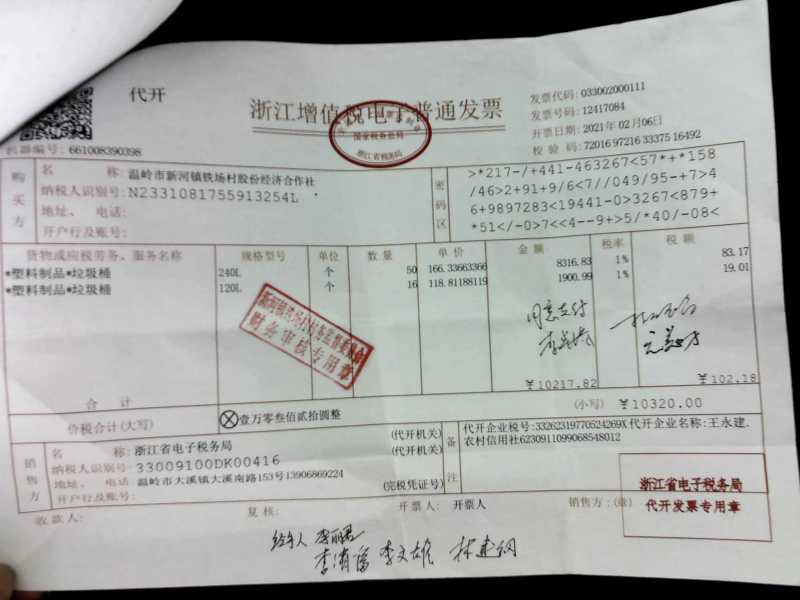 代开
浙江增值税电子普通发票
国家税务总局
浙江省税务局
发票代码: 033002000111
发票号码: 12417084
开票日期: 2021年02月06日
校验码: 72016 97216 33375 16492
机器编号: 661008390398
购买方
名称: 温岭市新河镇铁场村股份经济合作社
纳税人识别号: N2331081755913254L
地址、电话:
开户行及账号:
密码区
>*217-/+441-463267<57*+*158
/46>2+91+9/6<7//049/95-+7>4
6+9897283<19441-0>3267<879+
*51</-0>7<<4--9+>5/*40/-08<
货物或应税劳务、服务名称 规格型号 单位 数量 单价 金额 税率 税额
*塑料制品*垃圾桶 240L 个 50 166.33663366 8316.83 1% 83.17
*塑料制品*垃圾桶 120L 个 16 118.81188119 1900.99 1% 19.01
财务审核专用章
同意支付
合计 ¥10217.82 ¥102.18
价税合计(大写) ⊗壹万零叁佰贰拾圆整 (小写) ¥10320.00
销售方
名称: 浙江省电子税务局 (代开机关)
纳税人识别号: 33009100DK00416 (代开机关)
地址、电话: 温岭市大溪镇大溪南路153号13906869224
开户行及账号: (完税凭证号)
备注
代开企业税号:33262319770524269X 代开企业名称:王永建.
农村信用社6230911099068548012
浙江省电子税务局
代开发票专用章
收款人: 复核: 开票人: 开票人 销售方:(章)
经手人 李丽君
李文雄 林建钢